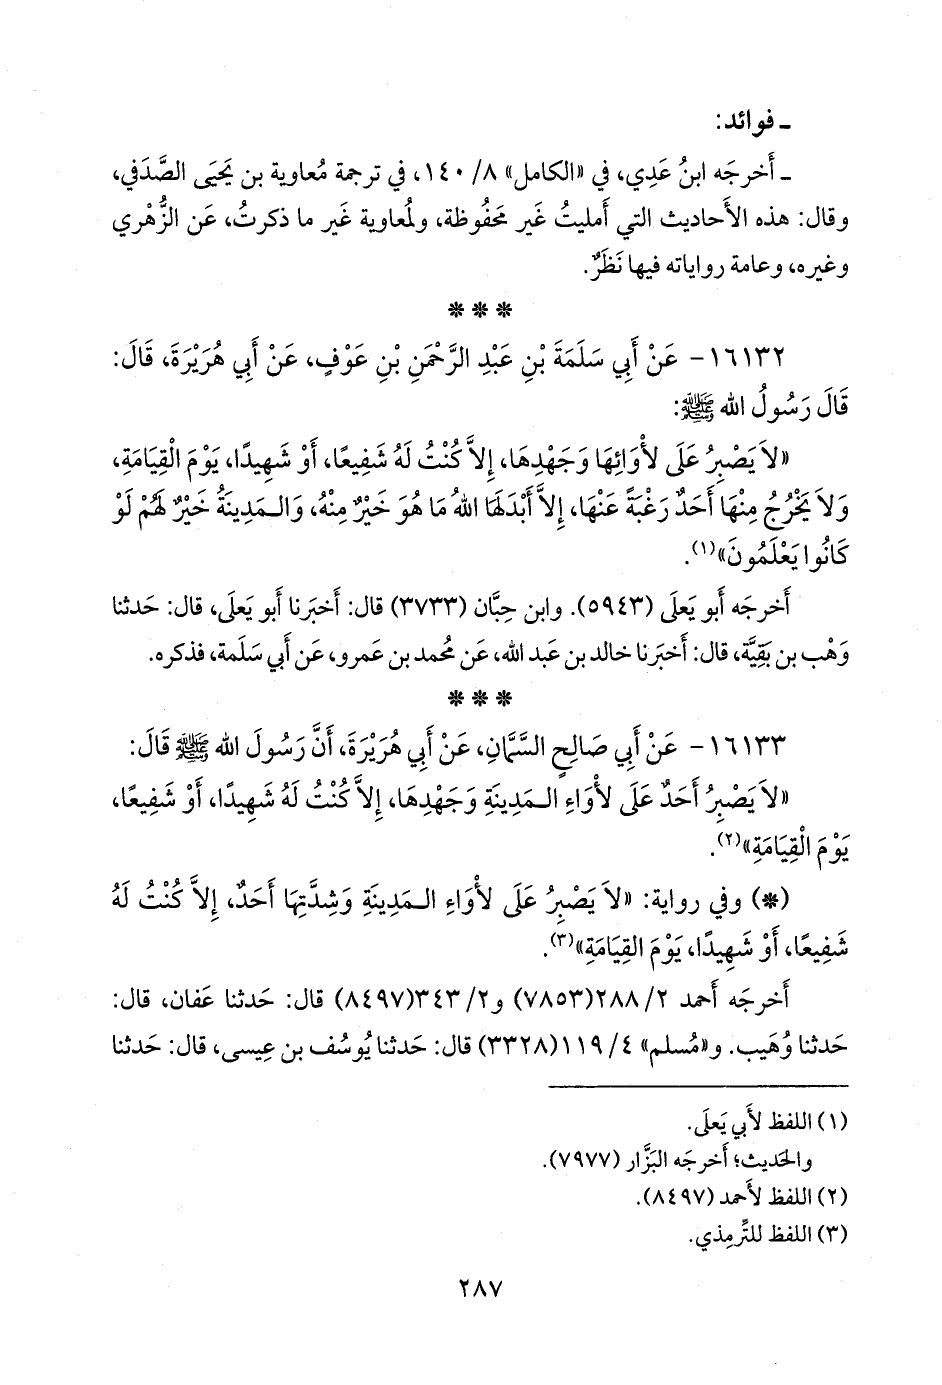 ـ فوائد:
ـ أَخرجَه ابنُ عَدِي، في «الكامل» ٨/ ١٤٠، في ترجمة مُعاوية بن يَحيَى الصَّدَفي،
وقال: هذه الأَحاديث التي أَمليتُ غَير مَحفُوظة، ولمُعاوية غَير ما ذكرتُ، عَن الزُّهْري
وغيره، وعامة رواياته فيها نَظَرٌ.
***
١٦١٣٢ - عَنْ أَبِي سَلَمَةَ بْنِ عَبْدِ الرَّحْمَنِ بْنِ عَوْفٍ، عَنْ أَبِي هُرَيْرَةَ، قَالَ:
قَالَ رَسُولُ الله ﷺ:
«لاَ يَصْبِرُ عَلَى لأْوَائِهَا وَجَهْدِهَا، إِلاَّ كُنْتُ لَهُ شَفِيعًا، أَوْ شَهِيدًا، يَوْمَ الْقِيَامَةِ،
وَلاَ يَخْرُجُ مِنْهَا أَحَدٌ رَغْبَةً عَنْهَا، إِلاَّ أَبْدَلَهَا اللهُ مَا هُوَ خَيْرٌ مِنْهُ، وَالـمَدِينَةُ خَيْرٌ لَهُمْ لَوْ
كَانُوا يَعْلَمُونَ»(١).
أَخرجَه أَبو يَعلَى (٥٩٤٣). وابن حِبَّان (٣٧٣٣) قال: أَخبَرنا أَبو يَعلَى، قال: حَدثنا
وَهْب بن بَقِيَّة، قال: أَخبَرنا خالد بن عَبد الله، عَن مُحمد بن عَمرو، عَن أَبي سَلَمة، فذكره.
***
١٦١٣٣ - عَنْ أَبِي صَالِحٍ السَّمَّانِ، عَنْ أَبِي هُرَيْرَةَ، أَنَّ رَسُولَ الله ﷺ قَالَ:
«لاَ يَصْبِرُ أَحَدٌ عَلَى لأْوَاءِ الـمَدِينَةِ وَجَهْدِهَا، إِلاَّ كُنْتُ لَهُ شَهِيدًا، أَوْ شَفِيعًا،
يَوْمَ الْقِيَامَةِ»(٢).
(*) وفي رواية: «لاَ يَصْبِرُ عَلَى لأْوَاءِ الـمَدِينَةِ وَشِدَّتِهَا أَحَدٌ، إِلاَّ كُنْتُ لَهُ
شَفِيعًا، أَوْ شَهِيدًا، يَوْمَ القِيَامَةِ»(٣).
أَخرجَه أَحمد ٢/ ٢٨٨(٧٨٥٣) و٢/ ٣٤٣(٨٤٩٧) قال: حَدثنا عَفان، قال:
حَدثنا وُهَيب. و«مُسلم» ٤/ ١١٩(٣٣٢٨) قال: حَدثنا يُوسُف بن عِيسى، قال: حَدثنا
(١) اللفظ لأَبي يَعلَى.
والحَديث؛ أَخرجَه البَزَّار (٧٩٧٧).
(٢) اللفظ لأَحمد (٨٤٩٧).
(٣) اللفظ للتِّرمِذي.
٢٨٧